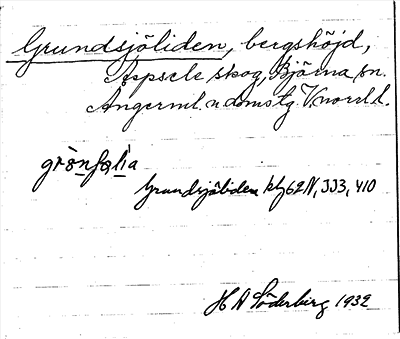 Grundsjöliden, bergshöjd,
Aspsele skog, Björna sn.
Ångerml. n. domstg. V.norrl. l.
grònfəlia
Grundsjöliden kbl 62 N, JJ3, 410
H A Söderberg 1932